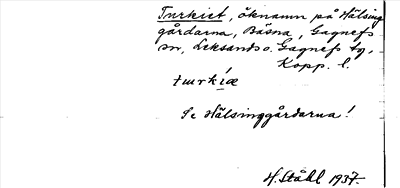 Turkiet, öknamn på Hälsing
gårdarna, Bäsna, Gagnefs
sn, Leksands o. Gagnefs tg,
Kopp. l.
turkíæ
Se Hälsinggårdarna!
H. Ståhl 1937.